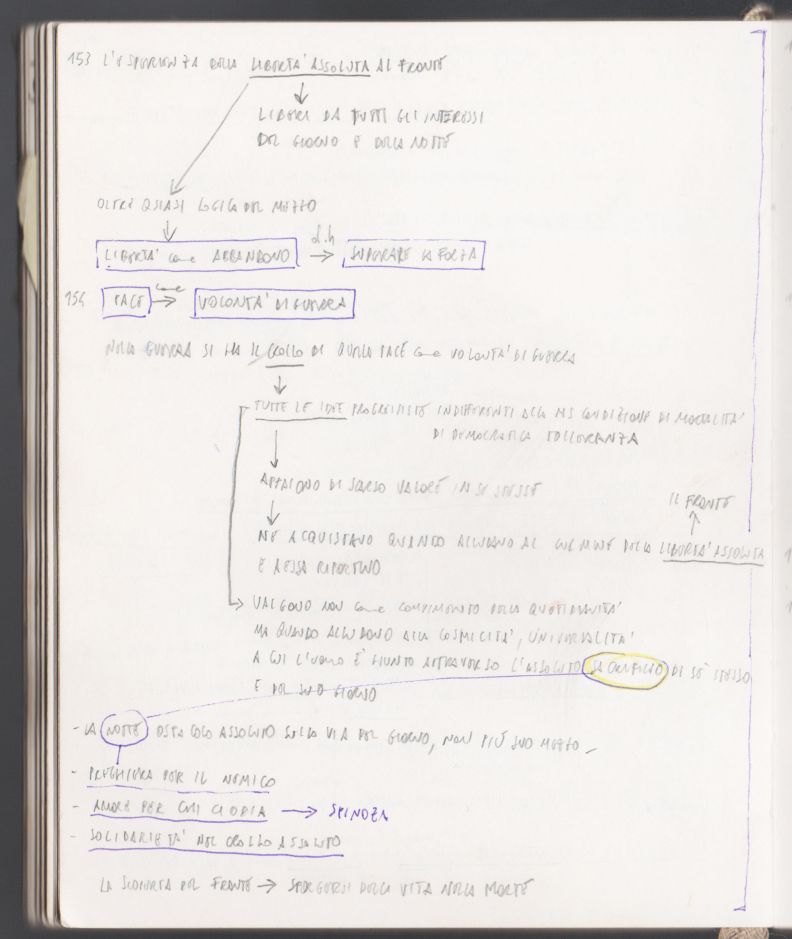 153 L'ESPERIENZA DELLA LIBERTA' ASSOLUTA AL FRONTE
LIBERI DA TUTTI GLI INTERESSI
DEL GIORNO E DELLA NOTTE
OLTRE QSIASI LOGICA DEL MEZZO
LIBERTA' come ABBANDONO → SUPERARE LA FORZA
154 PACE come → VOLONTA' DI GUERRA
NELLA GUERRA SI HA IL CROLLO DI QUELLA PACE come VOLONTA' DI GUERRA
TUTTE LE IDEE PROGRESISTE INDIFFERENTI ALLA NS CONDIZIONE DI MORTALITA'
DI DEMOCRATICA TOLLERANZA
APPAIONO DI SCARSO VALORE IN SE STESSE
IL FRONTE
NE ACQUISTANO QUANDO ALLUDANO AL CULMINE DELLA LIBERTA' ASSOLUTA
E AD ESSA RIPORTINO
VALGONO NON come COMPIMENTO DELLA QUOTIDIANITA'
MA QUANDO ALLUDONO ALLA COSMICITA', UNIVERSALITA'
A CUI L'UOMO E' GIUNTO ATTRAVERSO L'ASSOLUTO SACRIFICIO DI SE' STESSO
E DEL SUO GIORNO
- LA NOTTE OSTACOLO ASSOLUTO SULLA VIA DEL GIORNO, NON PIÙ SUO MEZZO
- PREGHIERA PER IL NEMICO
- AMORE PER CHI CI ODIA → SPINOZA
- SOLIDARIETA' NEL CROLLO ASSOLUTO
LA SCOPERTA DEL FRONTE → SPORGERSI DELLA VITA NELLA MORTE